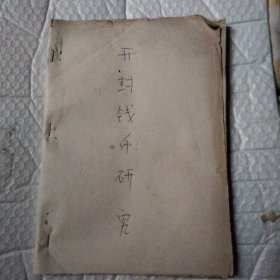 开封钱币研究